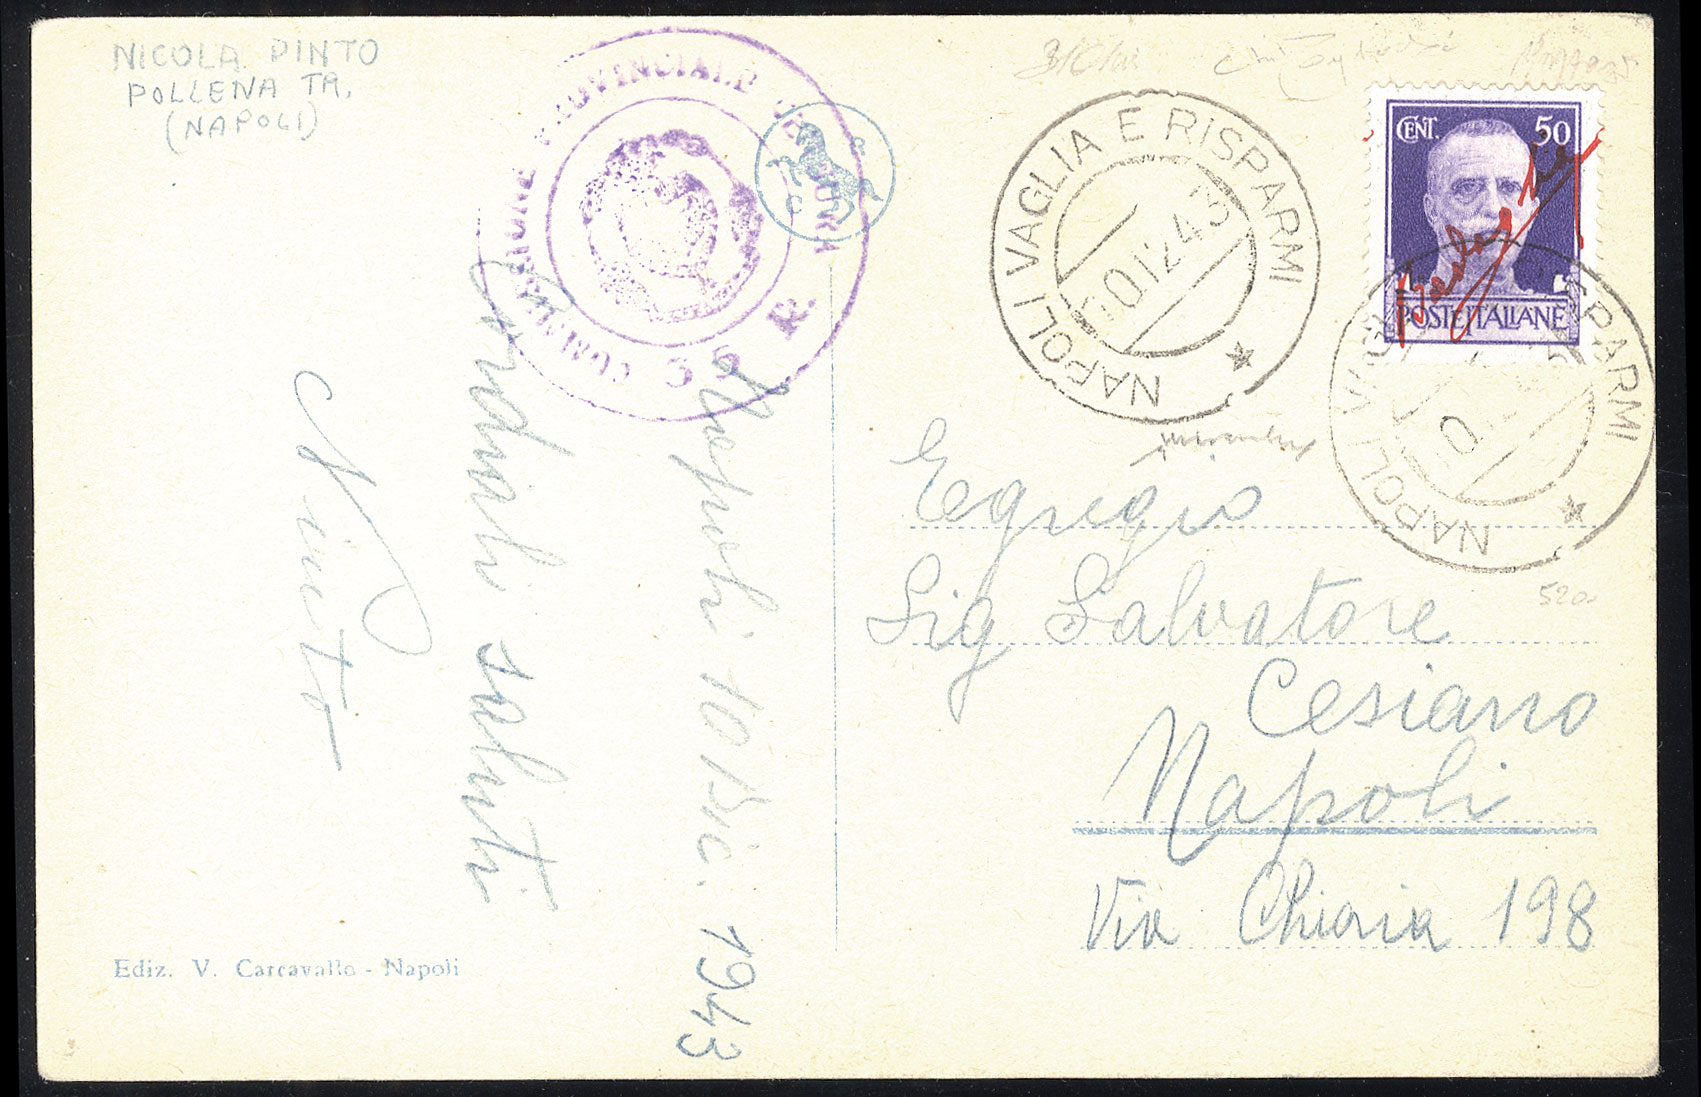 NICOLA PINTO
POLLENA TR.
(NAPOLI)
COMMISSIONE PROVINCIALE CENSURA
C. 9. R.
C C
NAPOLI VAGLIA E RISPARMI
10.12.43
CENT. 50
POSTE ITALIANE
NAPOLI VAGLIA E RISPARMI
10
Napoli 10 Dic. 1943
Cordiali saluti
Egregio
Sig Salvatore
Cesiano
Napoli
Via Chiaia 198
520
Ediz. V. Carcavallo - Napoli